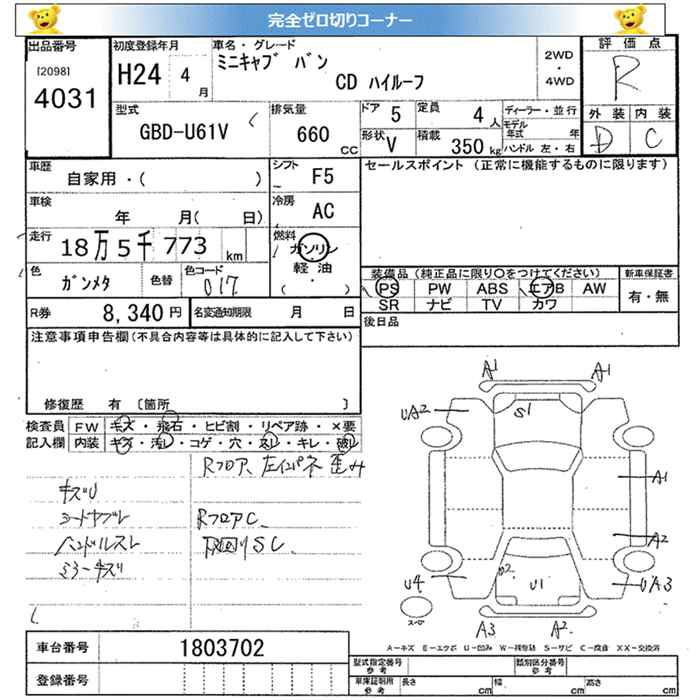 完全ゼロ切りコーナー
出品番号 [2098] 4031
初度登録年月 H24 4月
車名・グレード ミニキャブ バン
CD ハイルーフ
2WD・4WD
評価点 R
外装 内装
D C
型式 GBD-U61V
排気量 660 CC
ドア 5
定員 4人
形状 V
積載 350kg
ディーラー・並行
モデル年式 年
ハンドル 左・右
車歴 自家用・( )
シフト F5
セールスポイント (正常に機能するものに限ります)
車検 年 月( 日)
冷房 AC
走行 18万5千773km
燃料 ガソリン
軽油
( ・ )
色 ガンメタ
色替
色コード 017
装備品 (純正品に限り○をつけてください)
PS PW ABS エアB AW
SR ナビ TV カワ
新車保証書 有・無
R券 8,340円
名変通知期限 月 日
後日品
注意事項申告欄(不具合内容等は具体的に記入して下さい)
修復歴 有 〔箇所 〕
検査員記入欄
FW キズ・飛石・ヒビ割・リペア跡・×要
内装 キズ・汚レ・コゲ・穴・スレ・キレ・破レ
Rフロア、左インパネ歪み
キズU
シートヤブレ RフロアC
ハンドルスレ SC
ミラーキズ
A1 A1
UA2 S1
A1
A2
U4 U2 U1 UA3
スペア
A3 A2
A-キズ E-エクボ U-凹み W-補修跡 S-サビ C-腐食 XX-交換済
車台番号 1803702
登録番号
型式指定番号 参考
類別区分番号 参考
車庫証明用 参考 長さ cm 幅 cm 高さ cm